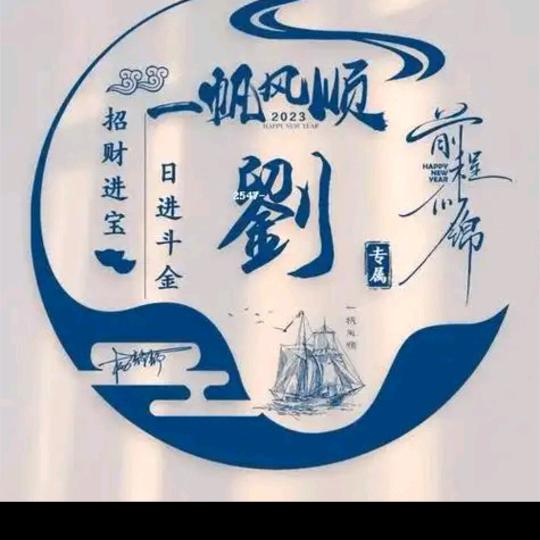 一帆风顺
2023
HAPPY NEW YEAR
招财进宝
日进斗金
劉
2547-
前程似锦
HAPPY
NEW
YEAR
专属
一帆风顺